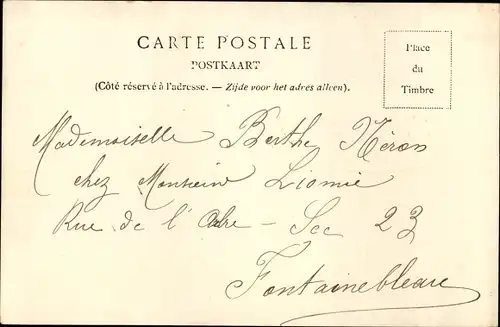 CARTE POSTALE
POSTKAART
(Côté réservé à l'adresse. — Zijde voor het adres alleen).
Place
du
Timbre
Mademoiselle Berthe Néron
chez Monsieur Liomie
Rue de l' Abre - Sec 23
Fontainebleau